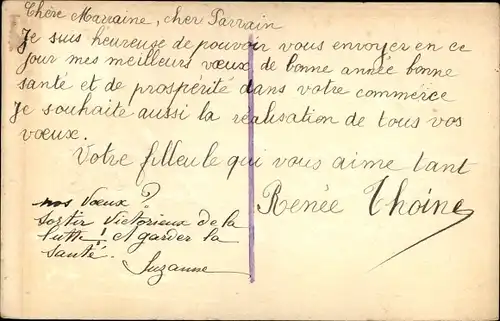 Chère Marraine, cher Parrain
Je suis heureuse de pouvoir vous envoyer en ce
jour mes meilleurs vœux de bonne année bonne
santé et de prospérité dans votre commerce
Je souhaite aussi la réalisation de tous vos
vœux.
Votre filleule qui vous aime tant
Renée Thoine
nos vœux ?
sortir victorieux de la
lutte ! et garder la
santé.
Suzanne